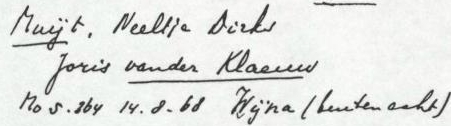 Muijt, Neeltje Dirks
Joris van der Klaeuw
No 5.364 14.8.68 Wijna (buitenacht)